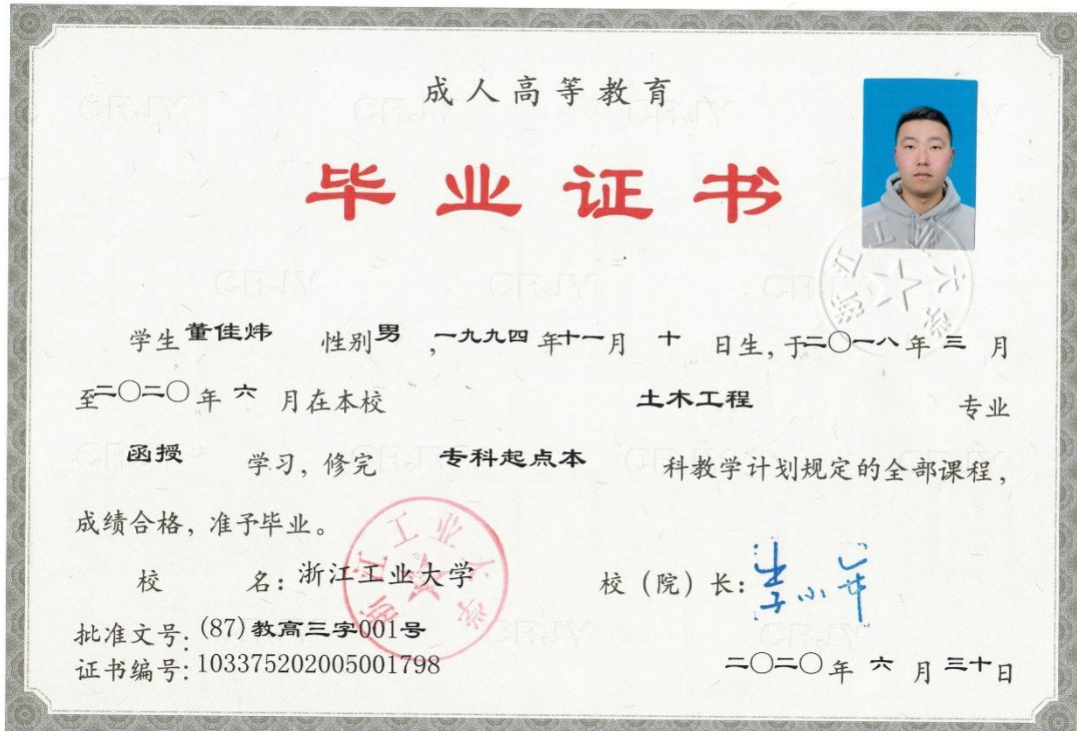 成人高等教育
毕业证书
学生 董佳炜 性别 男 ,一九九四年十一月 十 日生,于二〇一八年 三 月
至二〇二〇年 六 月在本校 土木工程 专业
函授 学习,修完 专科起点本 科教学计划规定的全部课程,
成绩合格,准予毕业。
校 名:浙江工业大学 校(院)长:李小年
批准文号:(87)教高三字001号
证书编号:103375202005001798 二〇二〇年 六 月 三十日
浙江工业大学
浙江工业大学
CRJY